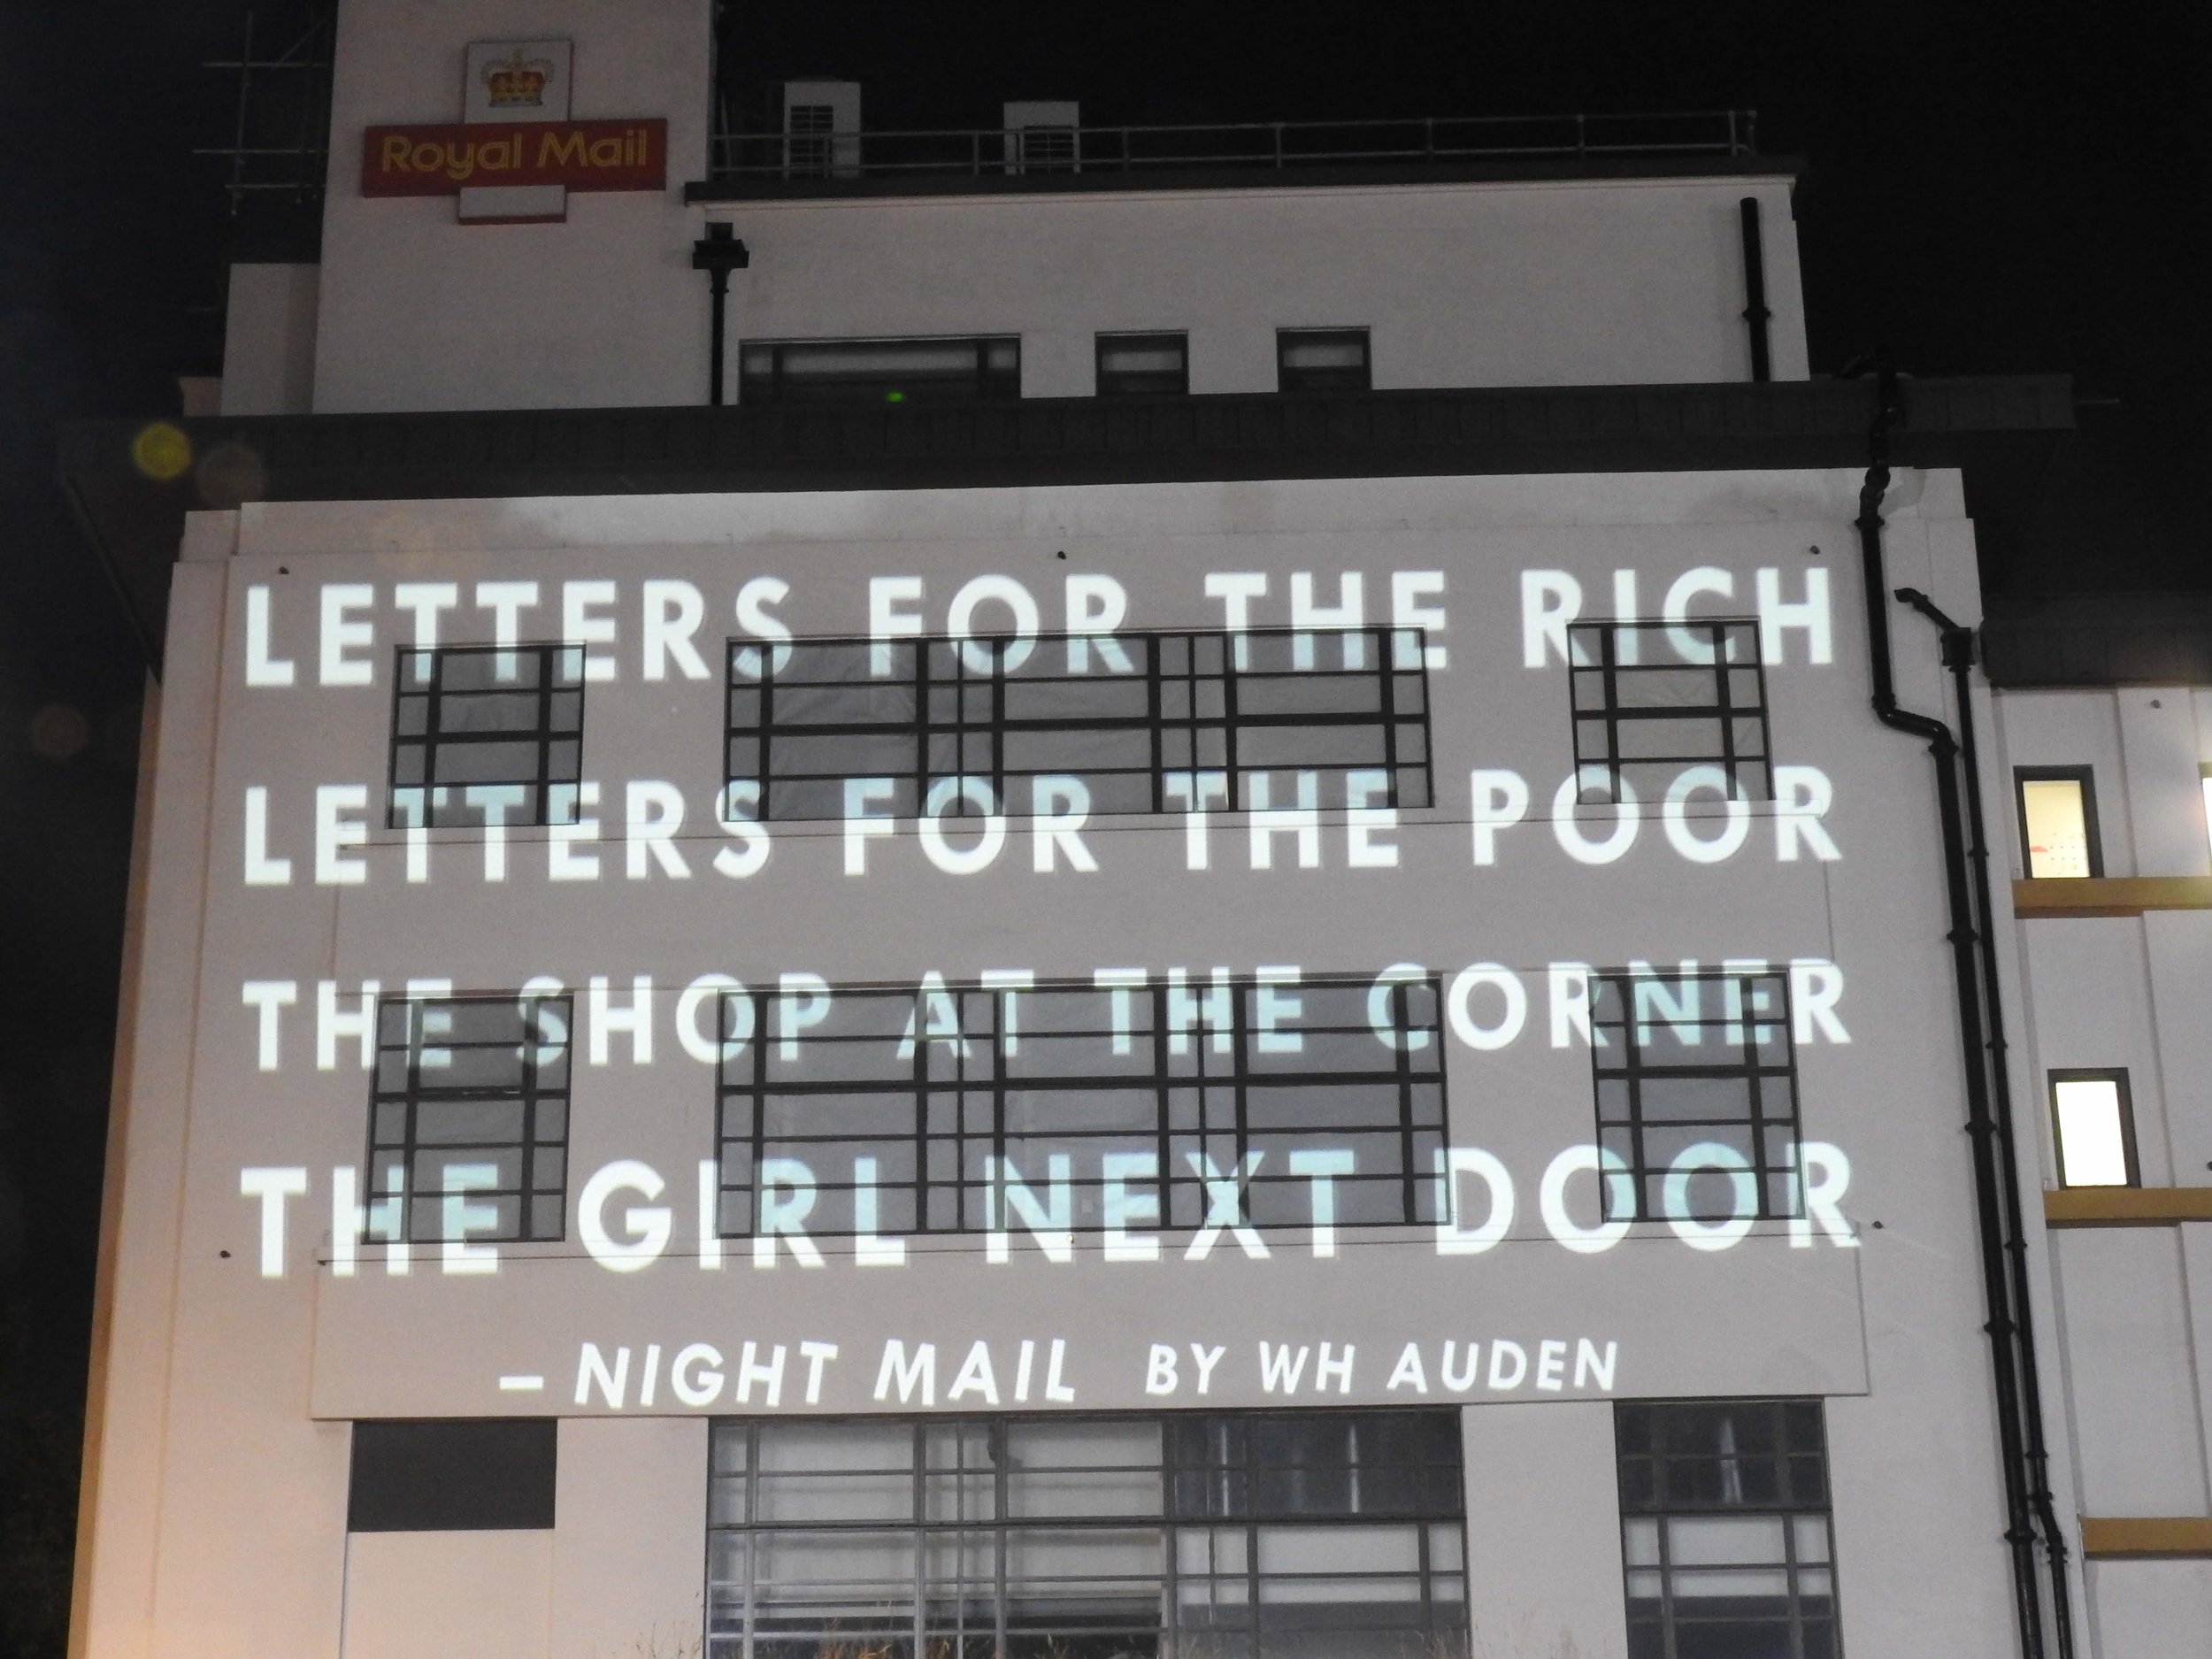 Royal Mail
LETTERS FOR THE RICH
LETTERS FOR THE POOR
THE SHOP AT THE CORNER
THE GIRL NEXT DOOR
– NIGHT MAIL BY WH AUDEN